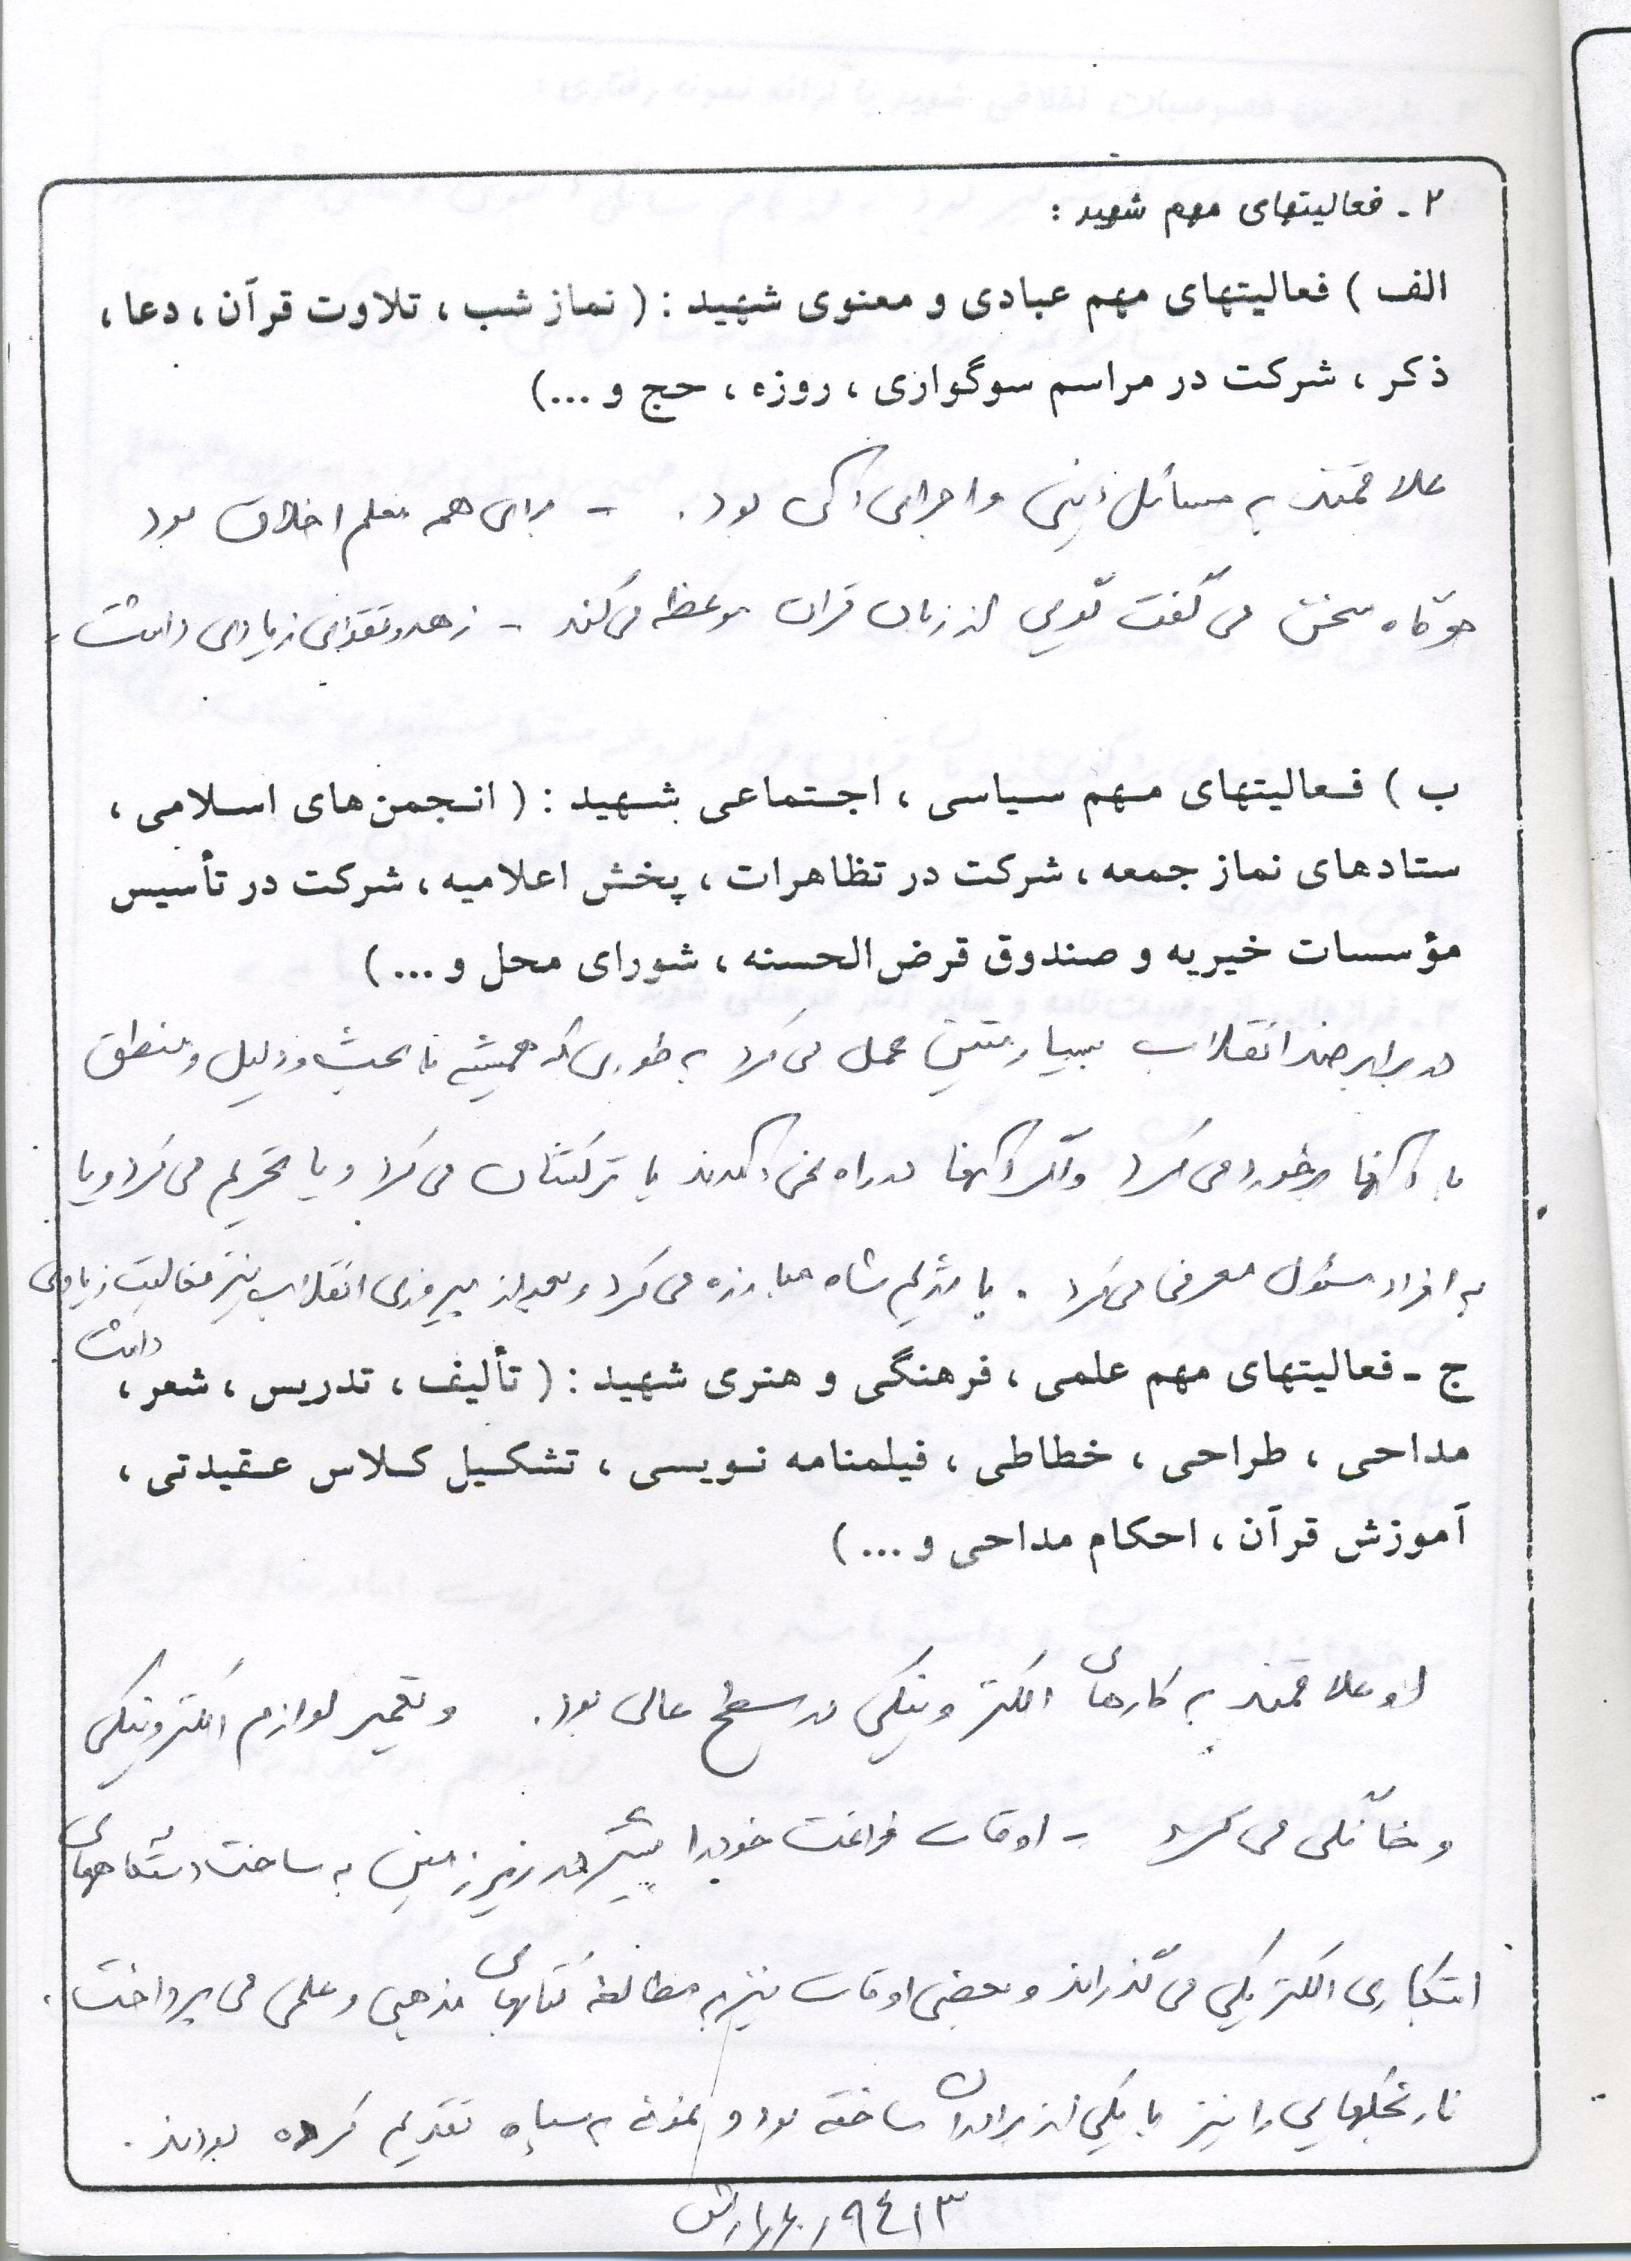 ۲ - فعالیتهای مهم شهید :
الف ) فعالیتهای مهم عبادی و معنوی شهید : ( نماز شب ، تلاوت قرآن ، دعا ،
ذکر ، شرکت در مراسم سوگواری ، روزه ، حج و ... )
علاقمند به مسائل دینی و اجرای آن بود . - برای همه معلم اخلاق بود
هرگاه سخن می گفت گویی از زبان قرآن موعظه می کند - زهد و تقوای زیادی داشت .
ب ) فعالیتهای مهم سیاسی ، اجتماعی شهید : ( انجمن های اسلامی ،
ستادهای نماز جمعه ، شرکت در تظاهرات ، پخش اعلامیه ، شرکت در تأسیس
مؤسسات خیریه و صندوق قرض الحسنه ، شورای محل و ... )
در برابر ضد انقلاب بسیار متین عمل می کرد به طوری که همیشه با بحث و دلیل و منطق
با آنها برخورد می کرد و اگر آنها در راه نمی آمدند یا ترکشان می کرد و یا تحریم می کرد و یا
به افراد مسئول معرفی می کرد . با رژیم شاه مبارزه می کرد و بعد از پیروزی انقلاب نیز فعالیت زیادی
داشت .
ج - فعالیتهای مهم علمی ، فرهنگی و هنری شهید : ( تألیف ، تدریس ، شعر ،
مداحی ، طراحی ، خطاطی ، فیلمنامه نویسی ، تشکیل کلاس عقیدتی ،
آموزش قرآن ، احکام مداحی و ... )
او علاقمند به کارهای الکترونیکی در سطح عالی بود . و تعمیر لوازم الکترونیکی
و خانگی می کرد - اوقات فراغت خود را بیشتر در زیرزمین به ساخت دستگاههای
ابتکاری الکتریکی می گذراند و بعضی اوقات نیز به مطالعه کتابهای مذهبی و علمی می پرداخت .
نارنجکهایی را نیز با یکی از برادران ساخته بود و نمونه به سپاه تقدیم کرده بودند .
۹٤۱۳